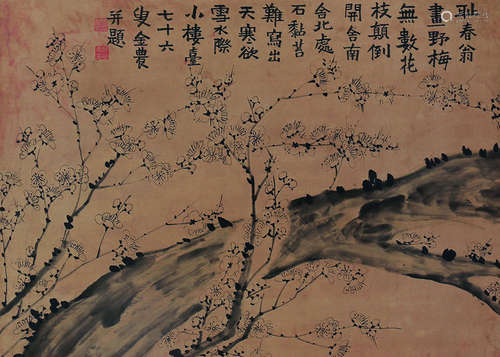 耻春翁
畫野梅
無數花
枝顛倒
開舍南
舍北處
石黏苔
難寫出
天寒欲
雪水際
小樓臺
七十六
叟金農
并題